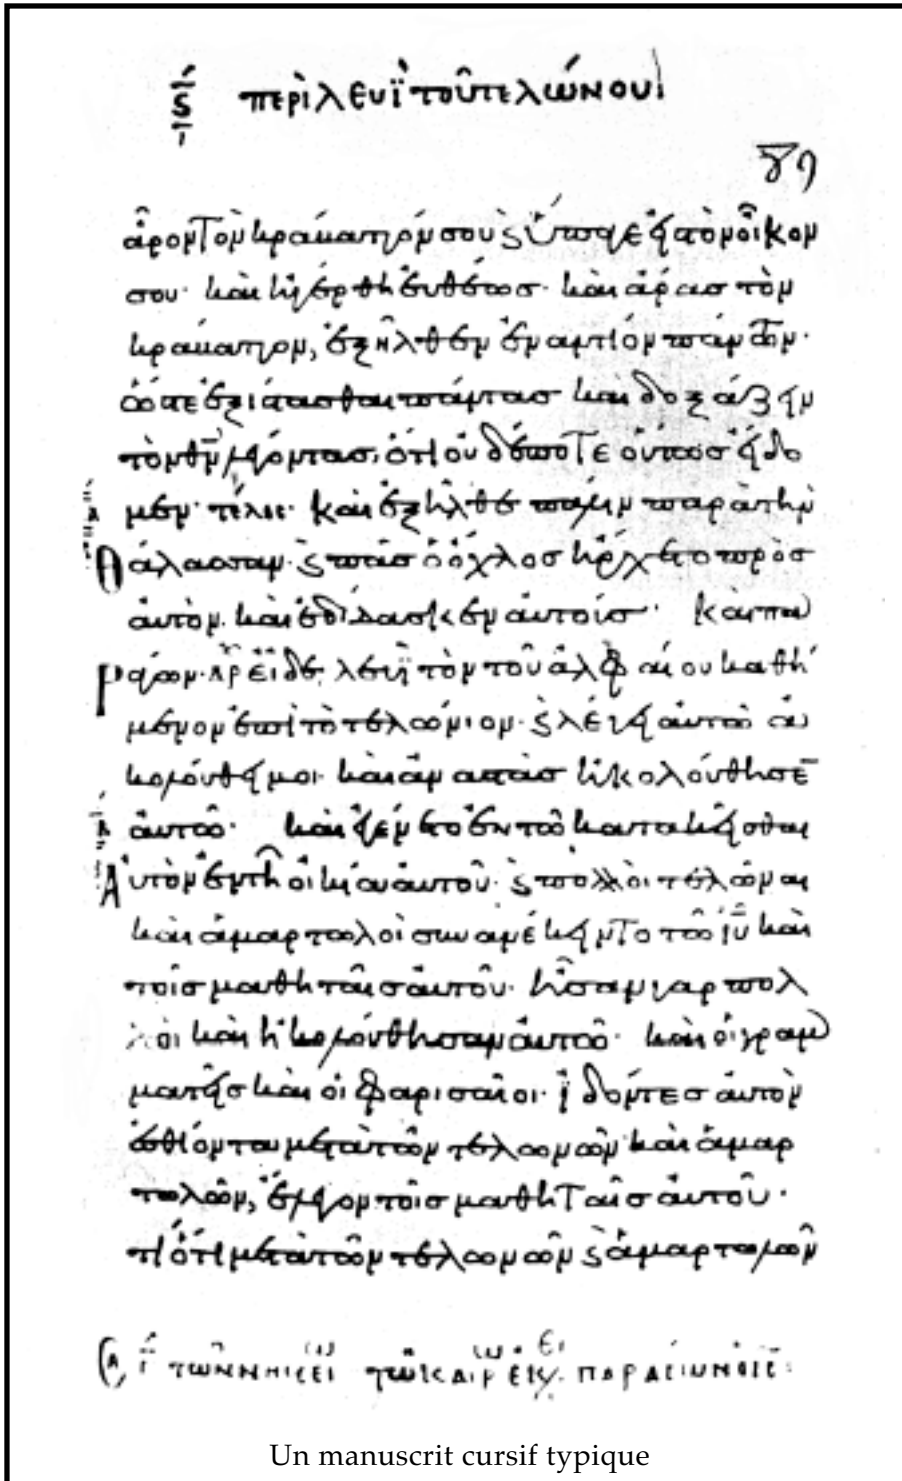 ϛ περὶ λευῒ τοῦ τελώνου
ἆρον τὸν κράβαττόν σου ϛ ὕπαγε εἰς τὸν οἶκον
σου· καὶ ἠγέρθη εὐθέωσ· καὶ ἄρασ τὸν
κράβαττον, ἐξῆλθεν ἐναντίον πάντων·
ὥστε ἐξίστασθαι πάντασ καὶ δοξάζειν
τὸν θ̅ν̅ λέγοντασ, ὅτι οὐδέποτε οὕτωσ εἴδο
μεν· καὶ ἐξῆλθε πάλιν παρὰ τὴν
θάλασσαν· ϛ πᾶσ ὁ ὄχλοσ ἤρχετο πρὸσ
αὐτὸν. καὶ ἐδίδασκεν αὐτούσ· καὶ πα
ράγων· εἶδε λευῒ τὸν τοῦ ἀλφαίου καθή
μενον ἐπὶ τὸ τελώνιον· ϛ λέγει αὐτῶ ἀ
κολούθει μοι· καὶ ἀναστὰσ ἠκολούθησε̅
αὐτῶ· καὶ ἐγένετο ἐν τῶ κατακεῖσθαι
Αὐτὸν ἐν τῆ οἰκία αὐτοῦ· ϛ πολλοὶ τελῶναι
καὶ ἁμαρτωλοὶ συνανέκειντο τῶ ι̅υ̅ καὶ
τοῖσ μαθηταῖσ αὐτοῦ· ἦσαν γαρ πολ
λοὶ καὶ ἠκολούθησαν αὐτῶ· καὶ οἱ γραμ
ματεῖσ καὶ οἱ φαρισαῖοι· ἰδόντεσ αὐτὸν
ἐσθίοντα μετὰ τῶν τελωνῶν καὶ ἁμαρ
τωλῶν, ἔλεγον τοῖσ μαθηταῖσ αὐτοῦ·
τί ὅτι μετὰ τῶν τελωνῶν ϛ ἁμαρτωλῶν
Un manuscrit cursif typique